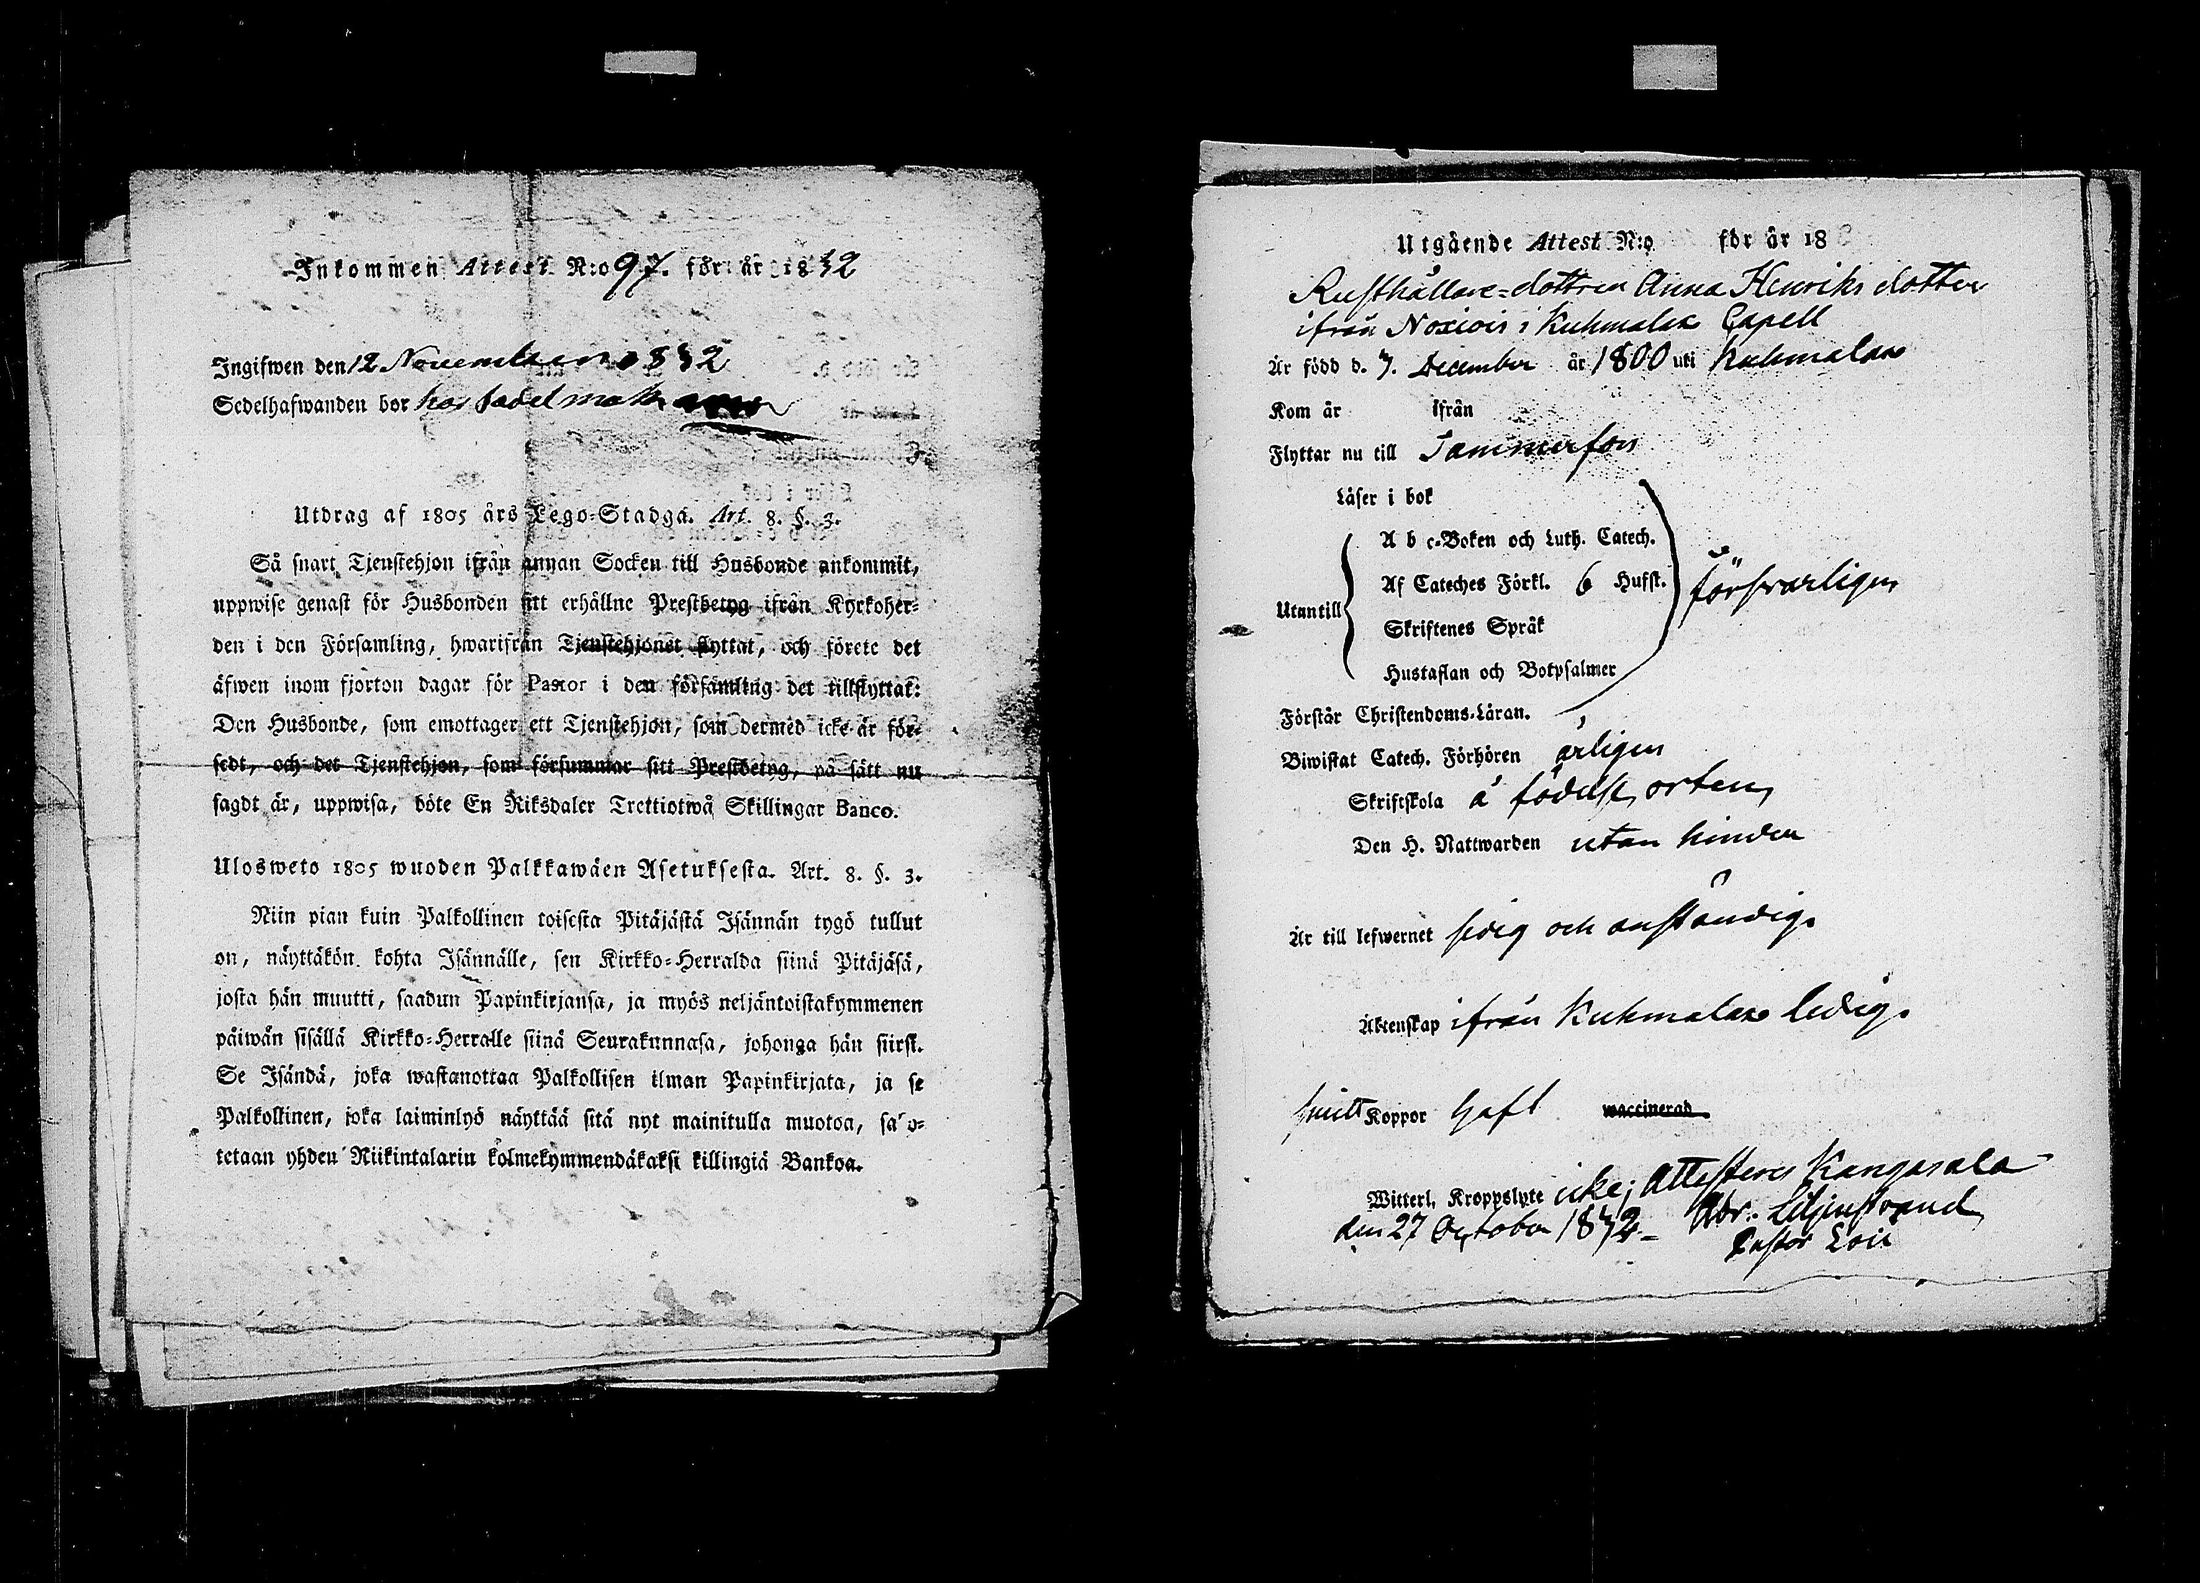 Inkommen Attest N:o 97. för år 1832
Ingifwen den 12 November 1832
Sedelhafwanden bor hos sadelmak
Utdrag af 1805 års Lego-Stadga. Art. 8. §. 3.
Så snart Tjenstehjon ifrån annan Socken till Husbonde ankommit,
uppwise genast för Husbonden sitt erhållne Prestbetyg ifrån Kyrkoher-
den i den Församling, hwarifrån Tjenstehjonet flyttat, och förete det
äfwen inom fjorton dagar för Pastor i den församling det tillflyttat:
Den Husbonde, som emottager ett Tjenstehjon, som dermed icke är för-
sedt, och det Tjenstehjon, som försummar sitt Prestbetyg, på sätt nu
sagdt är, uppwisa, böte En Riksdaler Trettiotwå Skillingar Banco.
Ulosweto 1805 wuoden Palkkawäen Asetuksesta. Art. 8. §. 3.
Niin pian kuin Palkollinen toisesta Pitäjästä Isännän tygö tullut
on, näyttäkön kohta Isännälle, sen Kirkko-Herralda siinä Pitäjäsä,
josta hän muutti, saadun Papinkirjansa, ja myös neljäntoistakymmenen
päiwän sisällä Kirkko-Herralle siinä Seurakunnasa, johonga hän siirsi.
Se Isändä, joka wastanottaa Palkollisen ilman Papinkirjata, ja se
Palkollinen, joka laiminlyö näyttää sitä nyt mainitulla muotoa, sa o-
tetaan yhden Riikintalarin kolmekymmendäkaksi killingiä Bankoa.
Utgående Attest N:o för år 18
Rusthållare-dottren Anna Henriks dotter
ifrån i Kuhmalax Capell
Är född d. 7. December år 1800 uti Kuhmalax
Kom år ifrån
Flyttar nu till Tammerfors
Läser i bok
A b c-Boken och Luth. Catech.
Af Cateches Förkl. 6 Hufst. försvarligen
Utantill
Skriftenes Språk
Hustaflan och Botpsalmer
Förstår Christendoms-Läran.
Biwistat Catech. Förhören årligen
Skriftskola å födelse orten
Den H. Nattwarden utan hinder
Är till lefwernet sedig och anständig.
Äktenskap ifrån Kuhmalax ledig.
Koppor haft waccinerad.
Witterl. Kroppslyte icke; Attesteres Kangasala
den 27 October 1832 - Abr. Liljenstrand
Pastor Loci